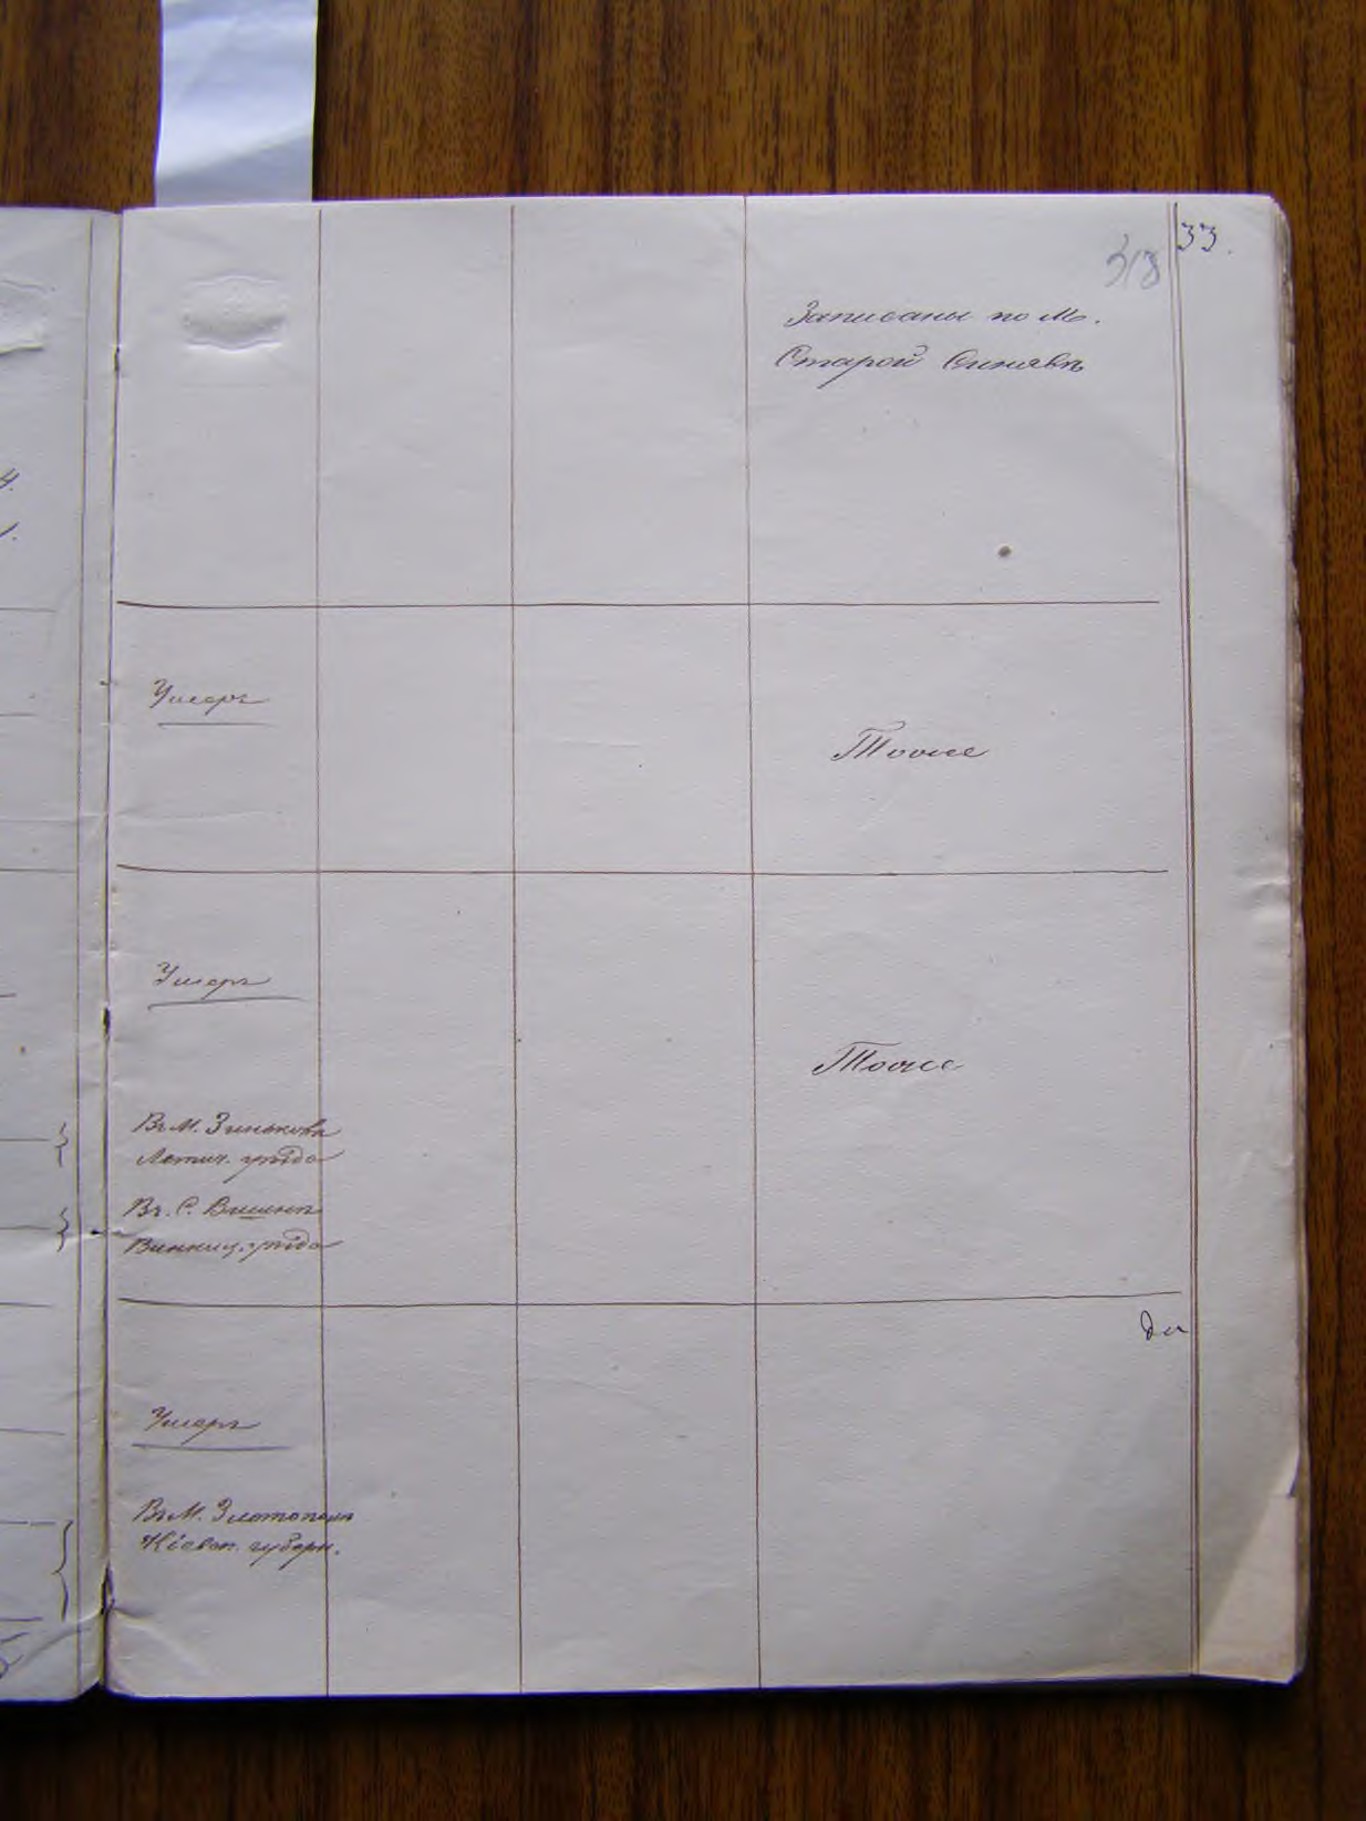 33.
318
Записаны по м.
Старой Синявѣ
Умеръ
Тоже
Умеръ
Тоже
Въ М. Зиньковѣ
Летич. уѣзда
Въ С. Вишнѣ
Винниц. уѣзда
Умеръ
Въ М. Златополѣ
Кіевск. губерн.